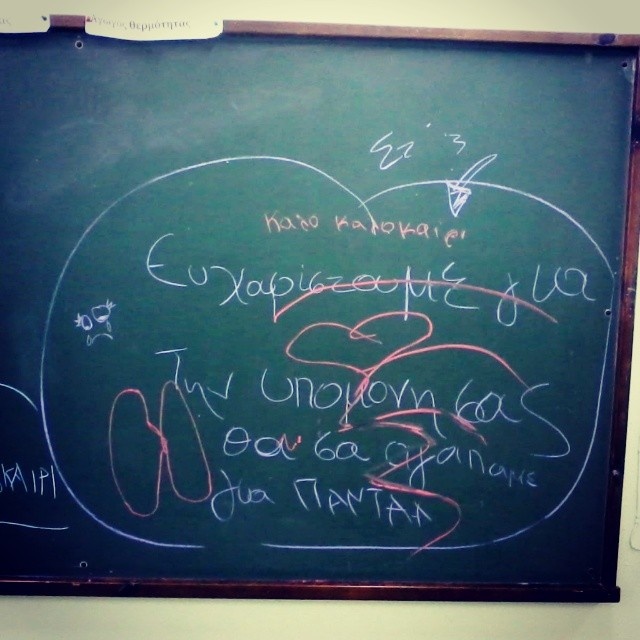 θερμότητας
Στ' 3
Καλο καλοκαιρι
Ευχαριστουμε για
Την υπομονη σας
θα σα αγαπαμε
για ΠΑΝΤΑ
ΚΑΙΡΙ